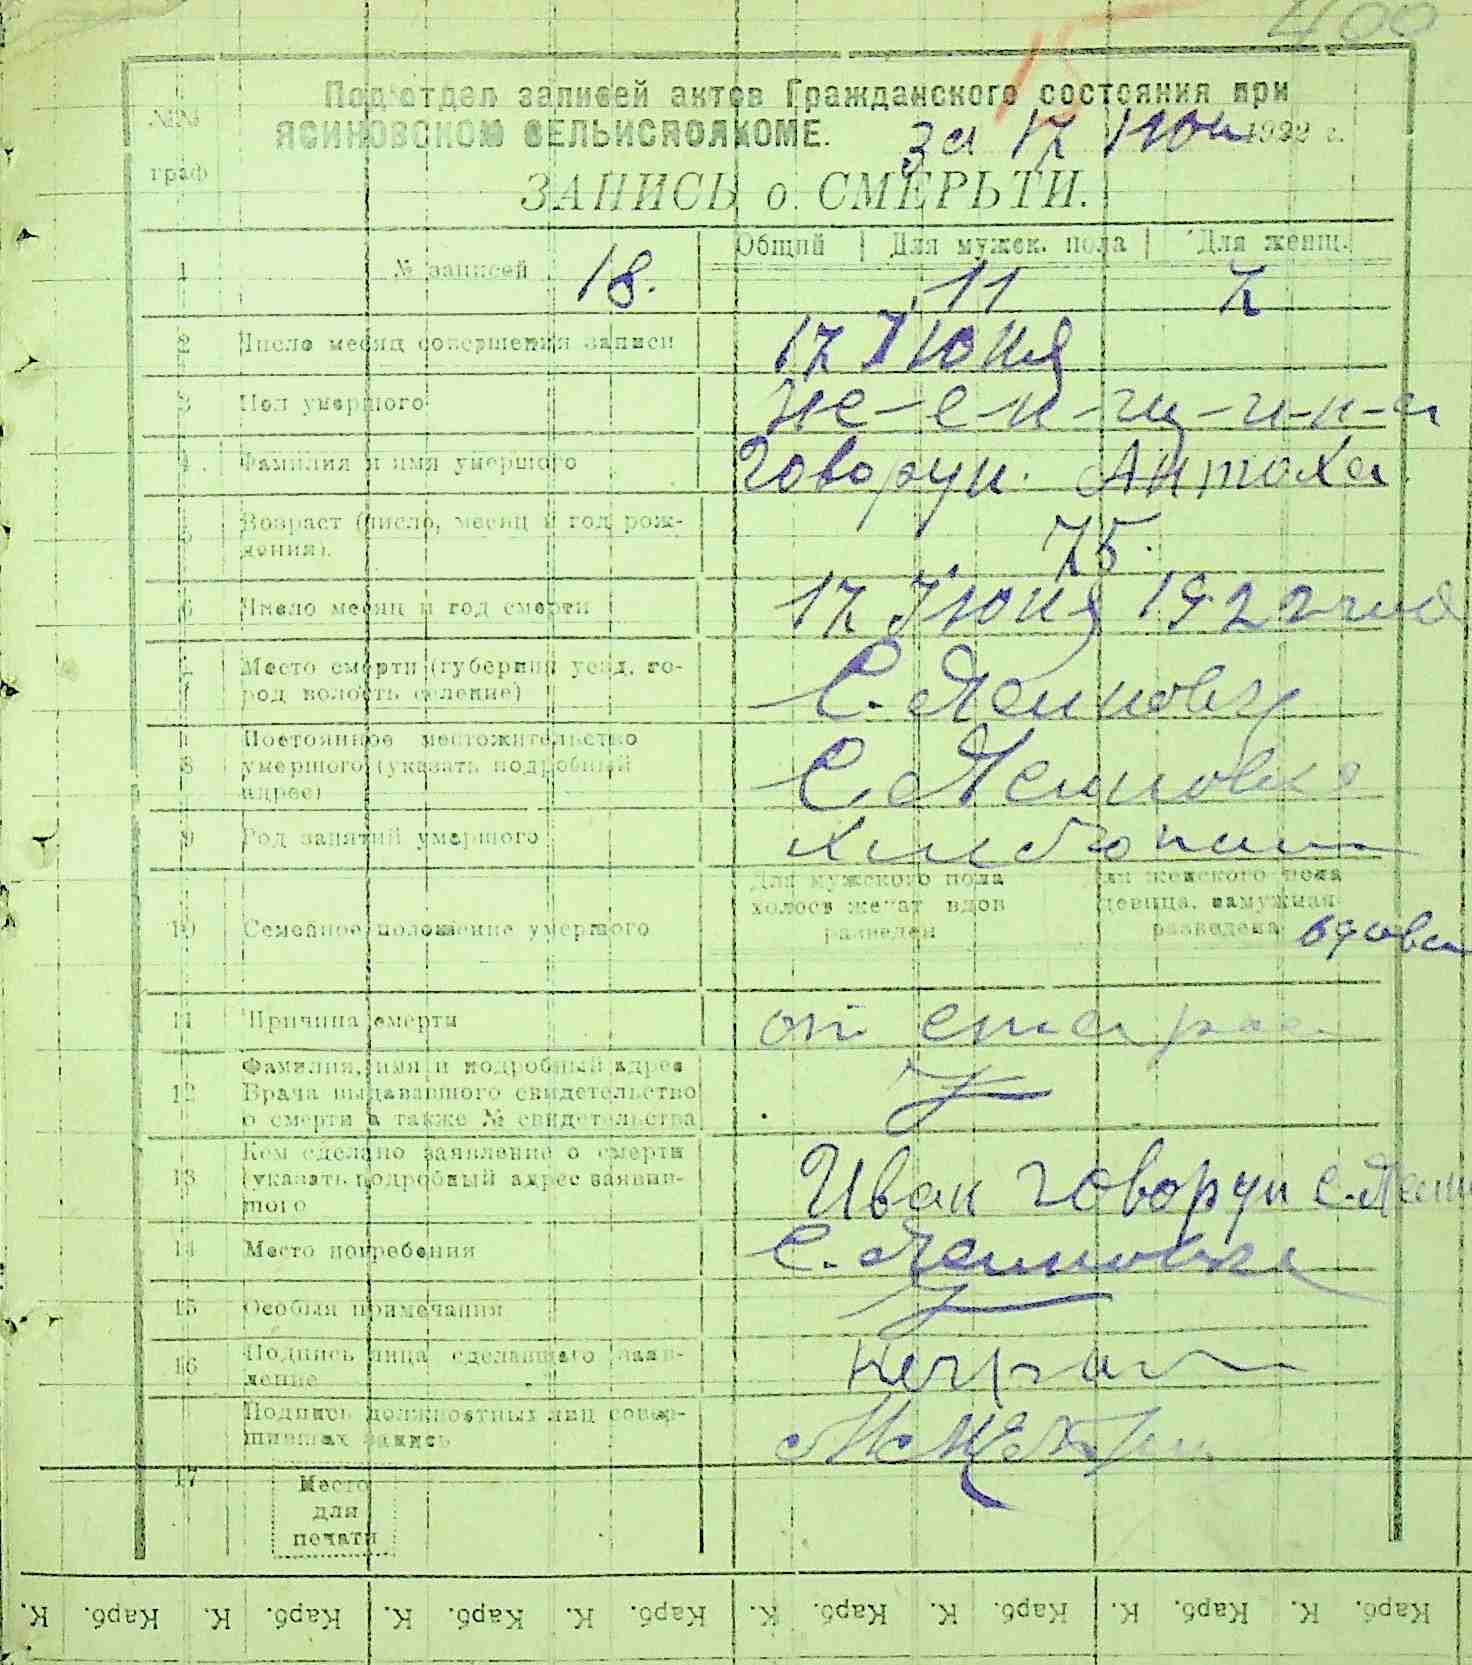 15 400
№№ граф
Подотдел записей актов Гражданского состояния при
ЯСИНОВСКОМ СЕЛЬИСПОЛКОМЕ. за 17 Июн 1922 г.
ЗАПИСЬ о СМЕРЬТИ.
Общий | Для мужек. пола | Для женщ.
1 № записей 18. 11 7
2 Число месяц совершения записи 17 Июня
3 Пол умершого же-е-н-щ-и-н-а
4 Фамилия и имя умершого Говорун. Антоха
5 Возраст (число, месяц и год рож-
дения). 75.
6 Число месяц и год смерти 17 Июня 1922 года
7 Место смерти (губерния уезд, го-
род волость селение) С. Ясиновку
8 Постоянное местожительство
умершого (указать подробный
адрес) С Ясиновка
9 Род занятий умершого
10 Семейное положение умершого
Для мужского пола
холост женат вдов
разведен
Для женского пола
девица, замужняя
разведена вдова
11 Причина смерти от
12 Фамилия, имя и подробный адрес
Врача выдавашного свидетельство
о смерти а также № свидетельства
13 Кем сделано заявление о смерти
(указать подробный адрес заявив-
шого Иван Говорун с. Ясин
14 Место погребения С. Ясиновка
15 Особыя примечания
16 Подпись лица сделавшего заяв-
ление неграм
Подпись должностных лиц совер-
шивших запись
17 Место
для
печати
К. Карб. К. Карб. К. Карб. К. Карб. К. Карб. К. Карб. К. Карб. К. Карб.